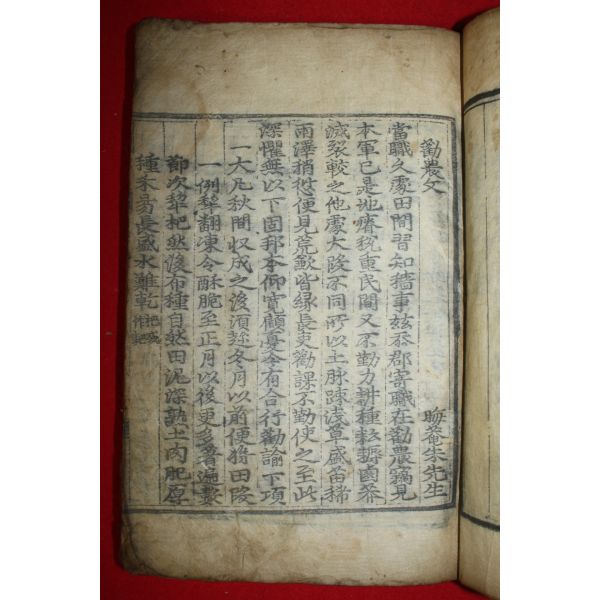 勸農文 晦菴朱先生
當職久處田間習知穡事玆忝郡寄職在勸農竊見
本軍已是地瘠稅重民間又不勤力耕種耘耨鹵莽
滅裂較之他處大段不同所以土脉踈淺草盛苗稀
雨澤稍愆便見荒歉皆緣長吏勸課不勤使之至此
深懼無以下固邦本仰寬顧憂今有合行勸諭下項
一大凡秋間收成之後須趂冬月以前便將田段
一例犂翻凍令酥脆至正月以後更多著遍數
節次犂杷然後布種自然田泥深熟土肉肥厚
種禾易長盛水難乾杷或作耙